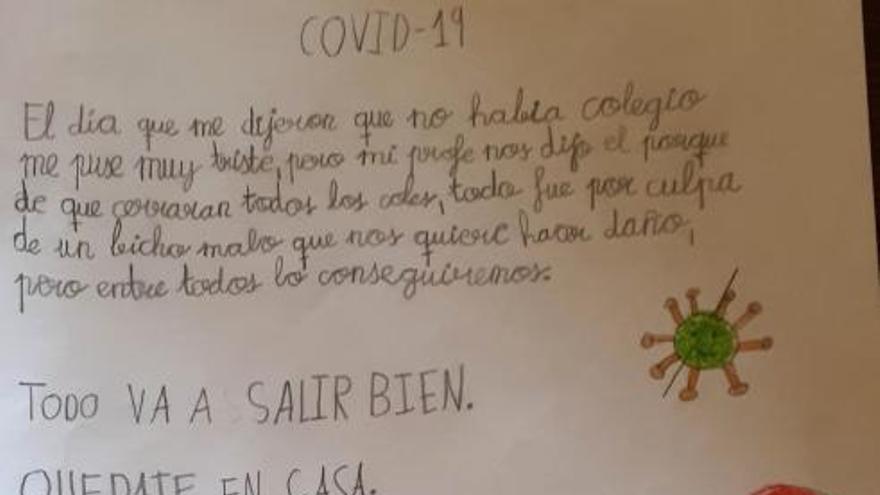 COVID-19
El día que me dijeron que no había colegio
me puse muy triste, pero mi profe nos dijo el porque
de que cerraran todos los coles, todo fue por culpa
de un bicho malo que nos quiere hacer daño,
pero entre todos lo conseguiremos.
TODO VA A SALIR BIEN.
QUEDATE EN CASA.